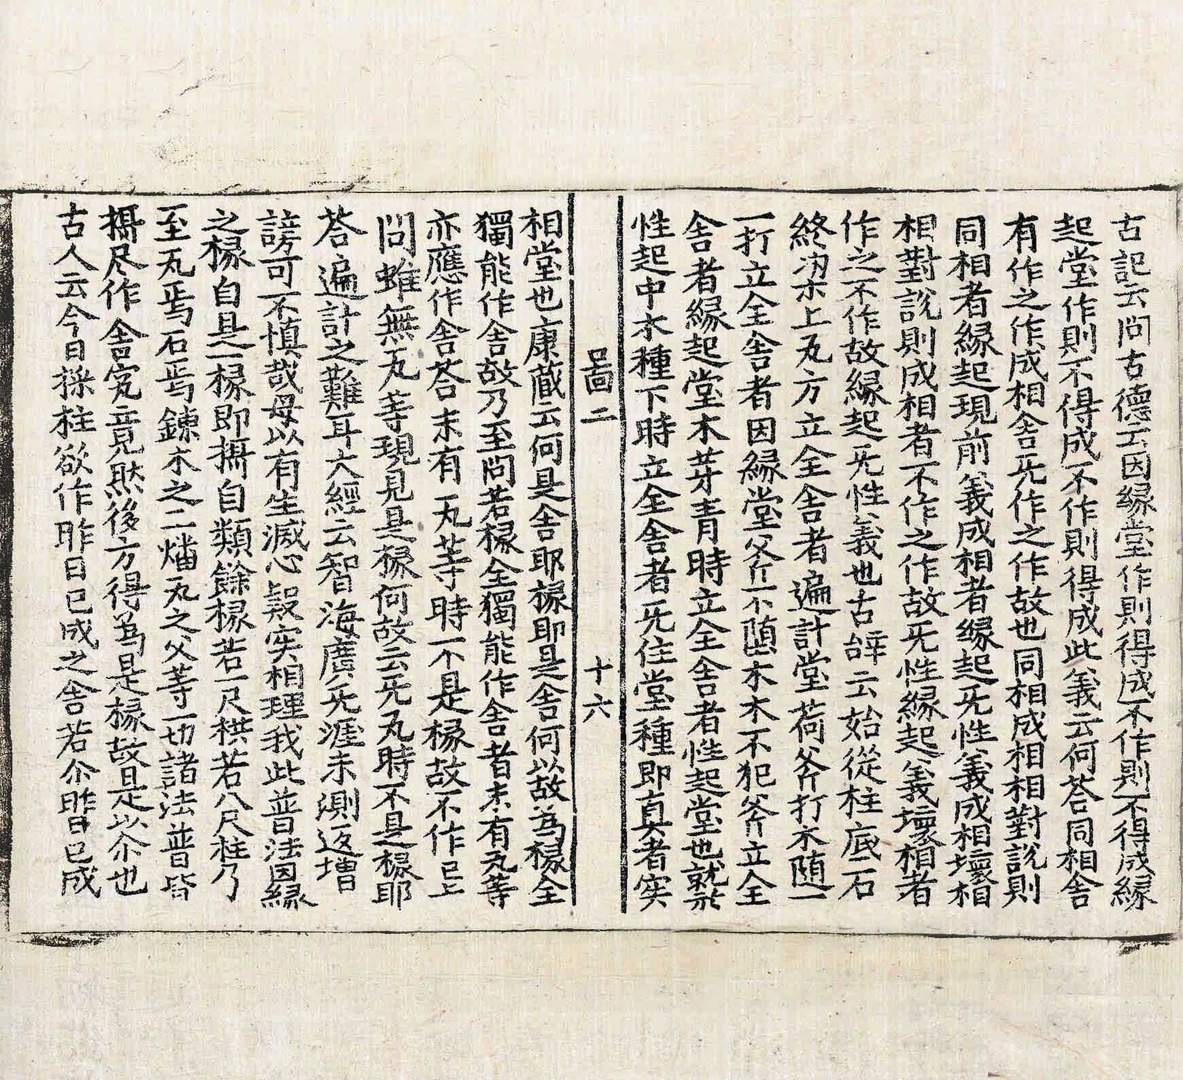 古記云問古德云因緣堂作則得成不作則不得成緣
起堂作則不得成不作則得成此義云何荅同相舍
有作之作成相舍旡作之作故也同相成相相對說則
同相者緣起現前義成相者緣起旡性義成相壞相
相對說則成相者不作之作故旡性緣起義壞相者
作之不作故緣起旡性義也古辝云始從柱底石
終上瓦方立全舍者遍計堂荷斧打木随一
一打立全舍者因緣堂斧不随木木不犯斧立全
舍者緣起堂木芽青時立全舍者性起堂也就於
性起中木種下時立全舍者旡住堂種即真者实
啚二 十六
相堂也康藏云何是舍耶椽即是舍何以故為椽全
獨能作舍故乃至問若椽全獨能作舍者未有瓦等
亦應作舍荅未有瓦等時不是椽故不作已上
問雖無瓦等現見是椽何故云旡瓦時不是椽耶
荅遍計之難耳大經云智海廣旡涯未測返增
謗可不慎哉毋以有生滅心疑实相理我此普法因緣
之椽自是一椽即攝自類餘椽若一尺栱若八尺柱乃
至瓦焉石焉鍊木之二燔瓦之父等一切諸法普皆
攝尽作舍究竟然後方得為是椽故是以尒也
古人云今日採柱欲作昨日已成之舍若尒昨日已成